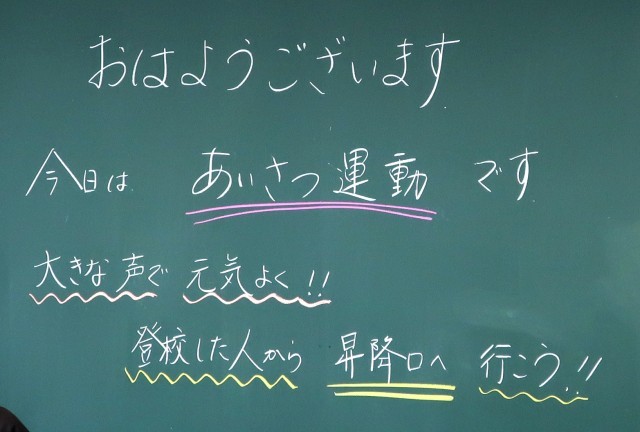 おはようございます
今日は あいさつ運動 です
大きな声で 元気よく!!
登校した人から 昇降口へ 行こう!!